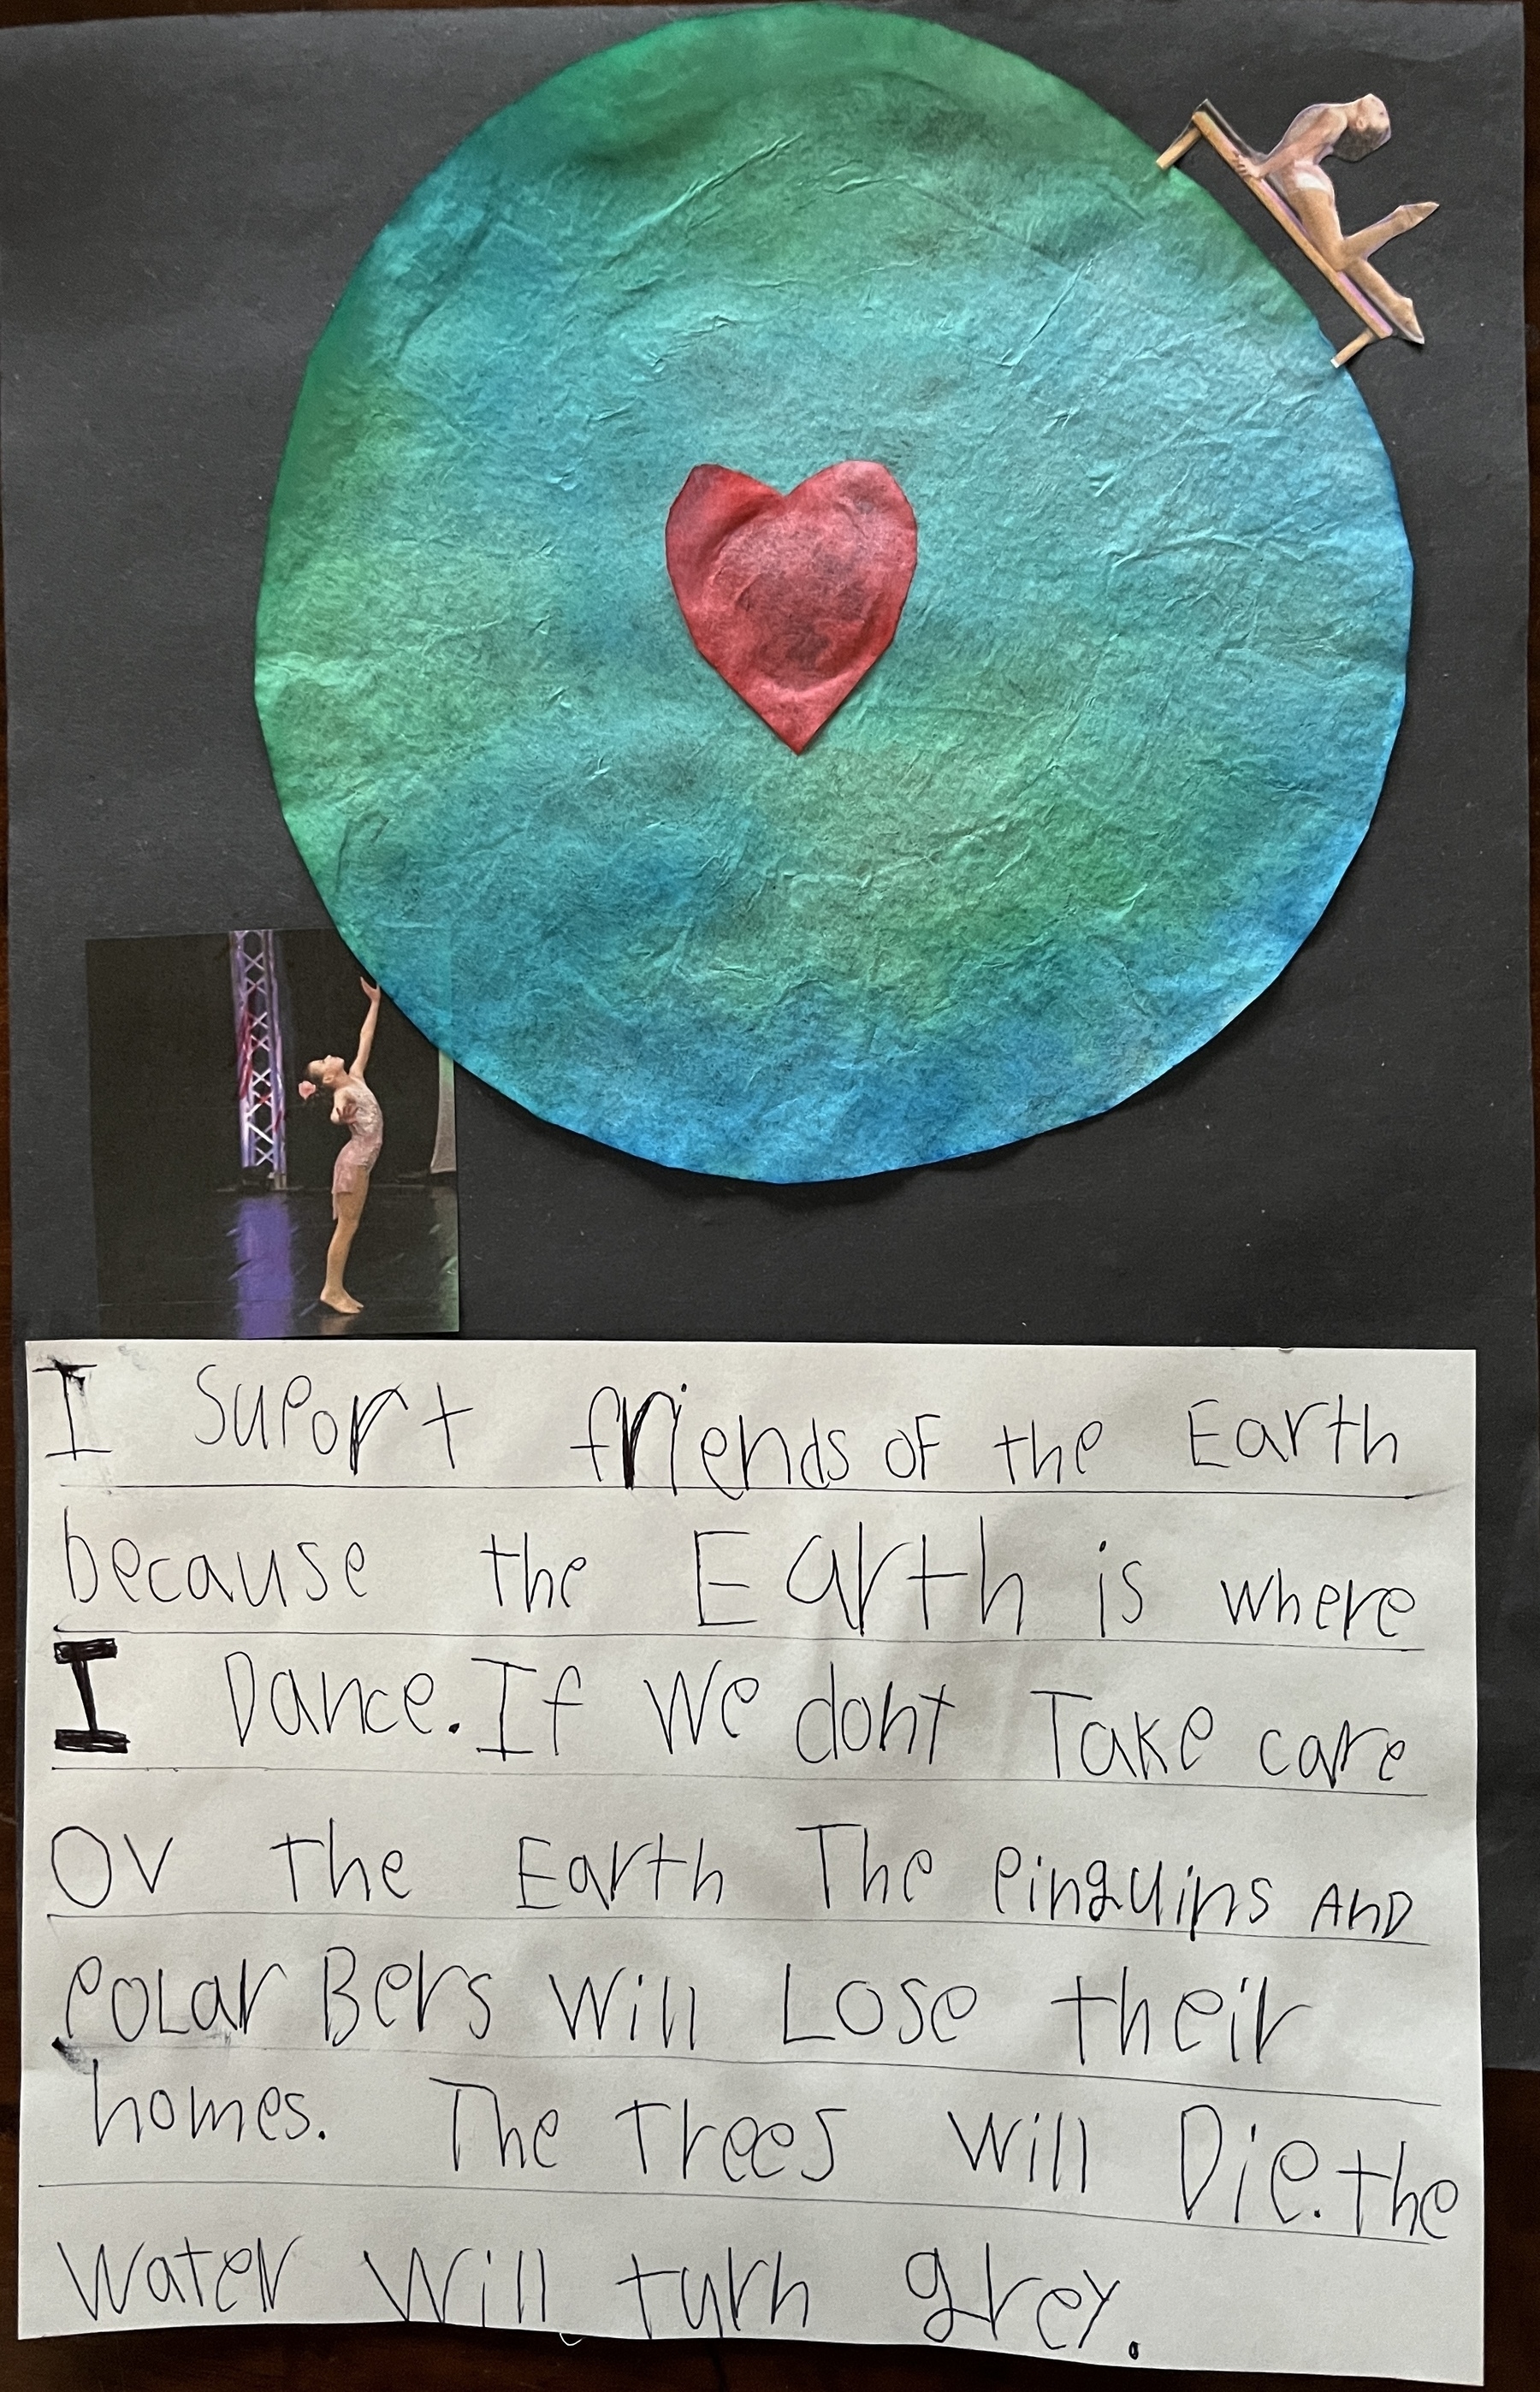 I Suport friends of the Earth
because the Earth is where
I Dance. If We dont Take care
Ov The Earth The Pinguins AnD
Polar Bers Will Lose their
homes. The Trees Will Die. the
Water Will turn grey.